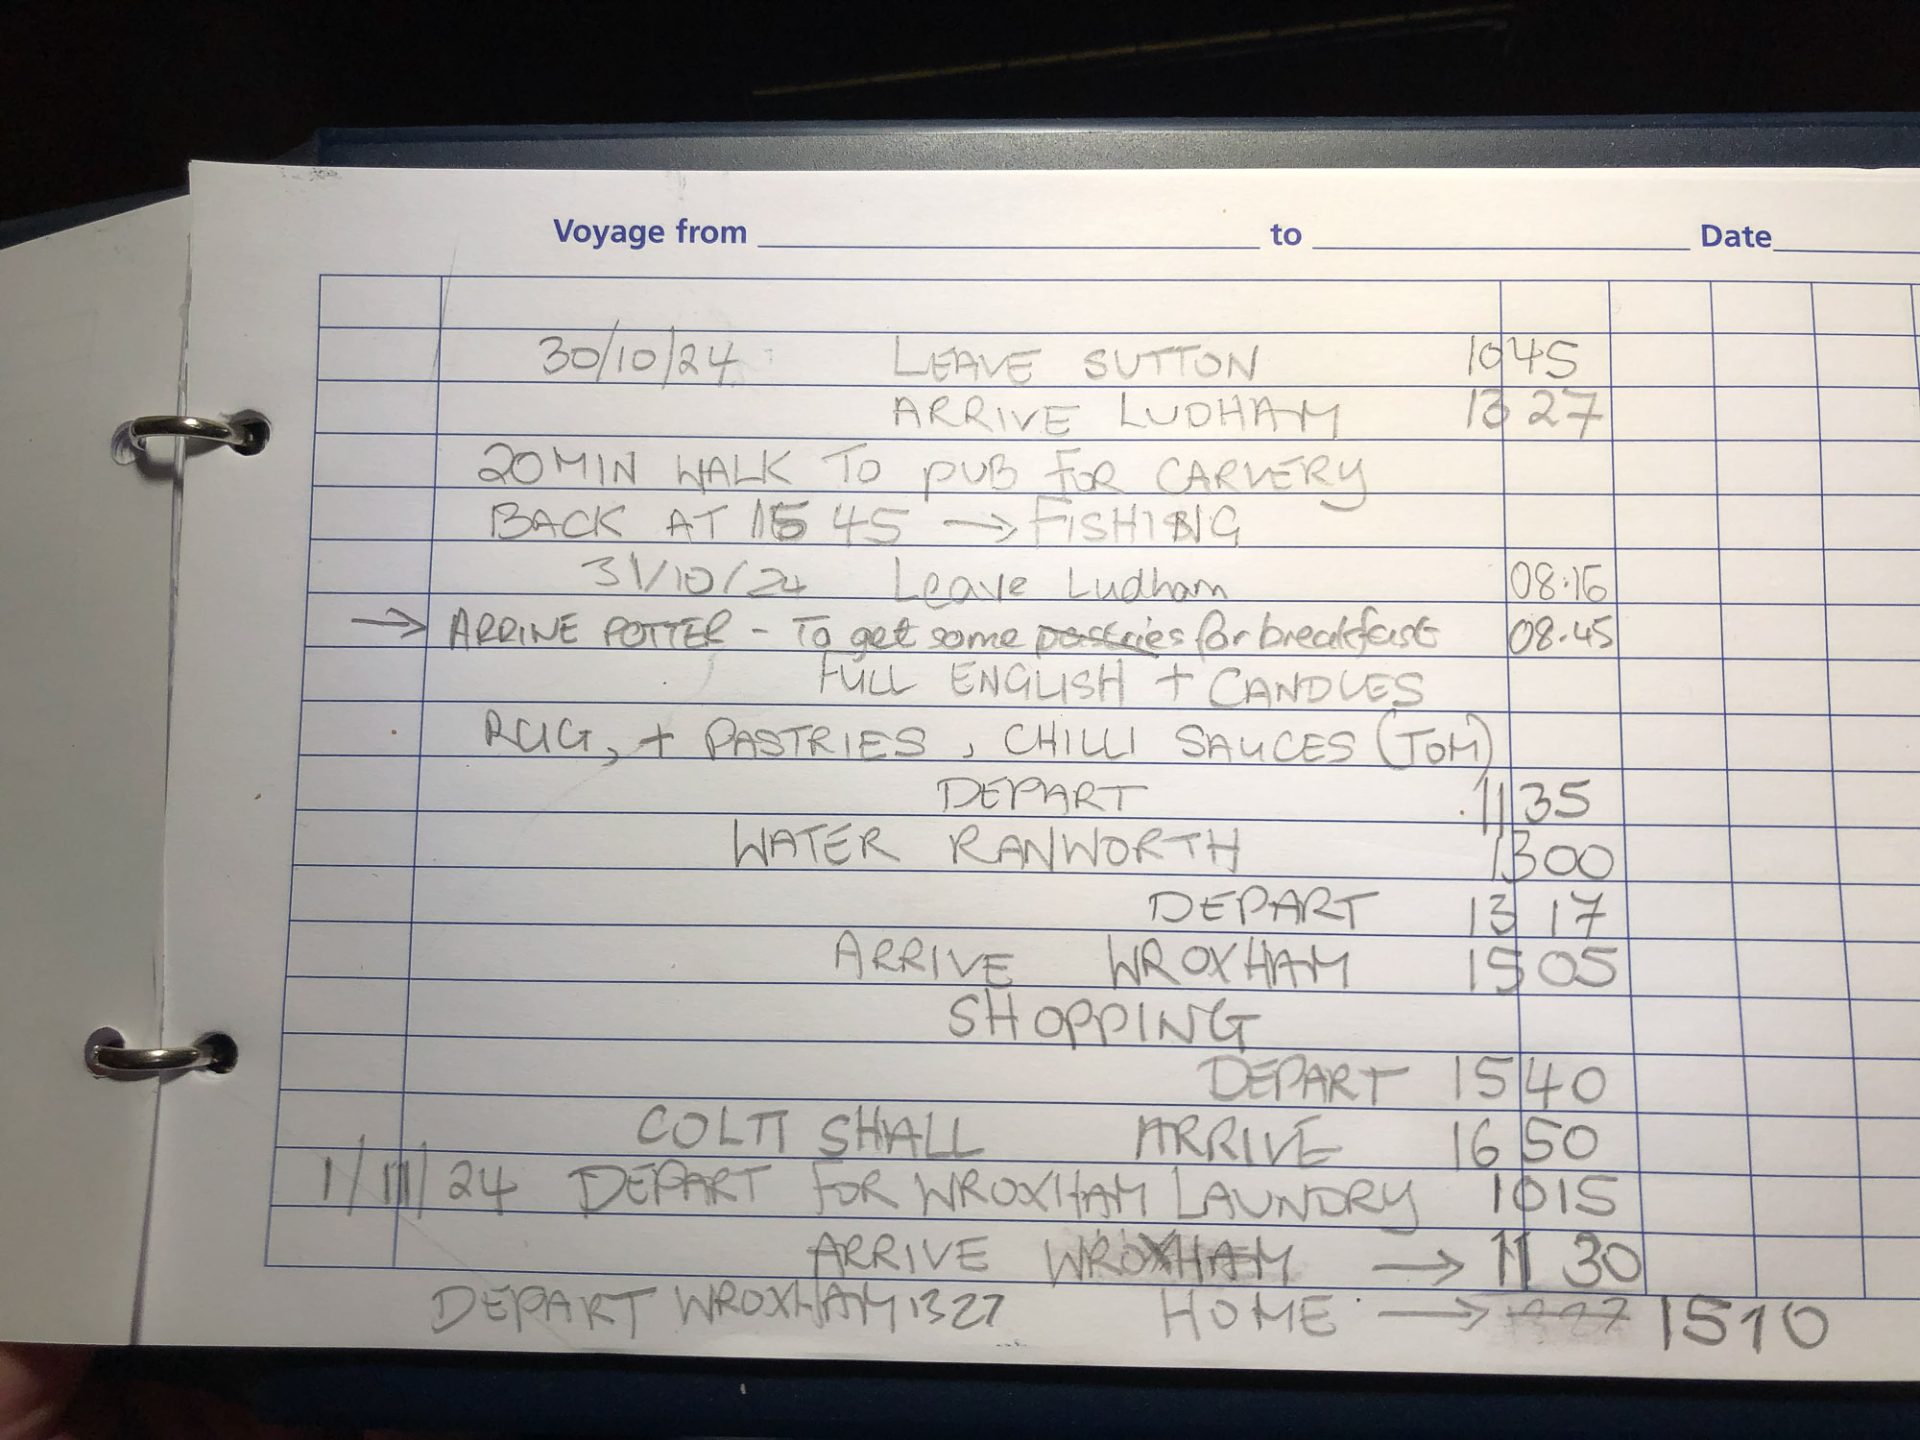 Voyage from to Date
30/10/24 LEAVE SUTTON 1045
ARRIVE LUDHAM 13 27
20MIN WALK TO PUB FOR CARVERY
BACK AT 15 45 → FISHING
31/10/24 Leave Ludham 08:16
→ ARRINE POTTER - To get some pastries for breakfast 08.45
FULL ENGLISH + CANDLES
RUG, + PASTRIES, CHILLI SAUCES (TOM)
DEPART 1135
WATER RANWORTH 1300
DEPART 13 17
ARRIVE WROXHAM 1505
SHOPPING
DEPART 1540
COLTISHALL ARRIVE 1650
1/11/24 DEPART FOR WROXHAM LAUNDRY 1015
ARRIVE WROXHAM → 11 30
DEPART WROXHAM 1327 HOME → 1510